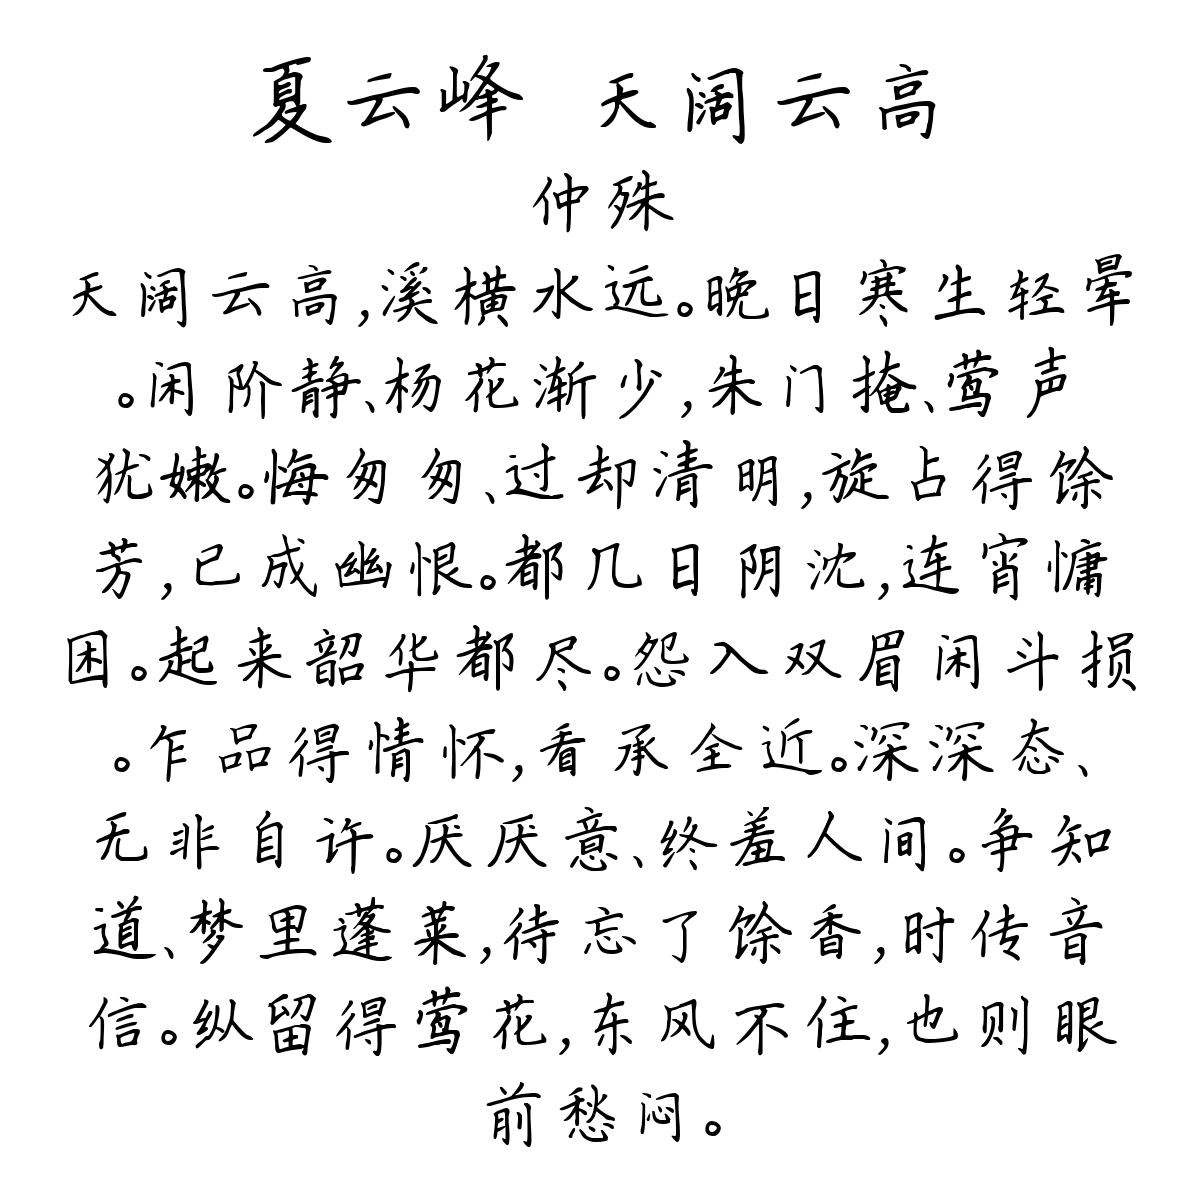 夏云峰 天阔云高
仲殊
天阔云高,溪横水远。晚日寒生轻晕
。闲阶静、杨花渐少,朱门掩、莺声
犹嫩。悔匆匆、过却清明,旋占得馀
芳,已成幽恨。都几日阴沈,连宵慵
困。起来韶华都尽。怨入双眉闲斗损
。乍品得情怀,看承全近。深深态、
无非自许。厌厌意、终羞人间。争知
道、梦里蓬莱,待忘了馀香,时传音
信。纵留得莺花,东风不住,也则眼
前愁闷。